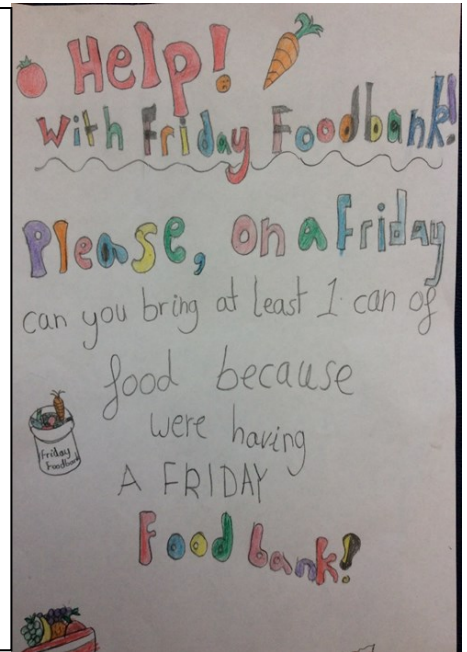 Help!
With Friday Foodbank!
Please, on a Friday
can you bring at least 1 can of
food because
were having
A FRIDAY
Food bank!
Friday
Foodbank